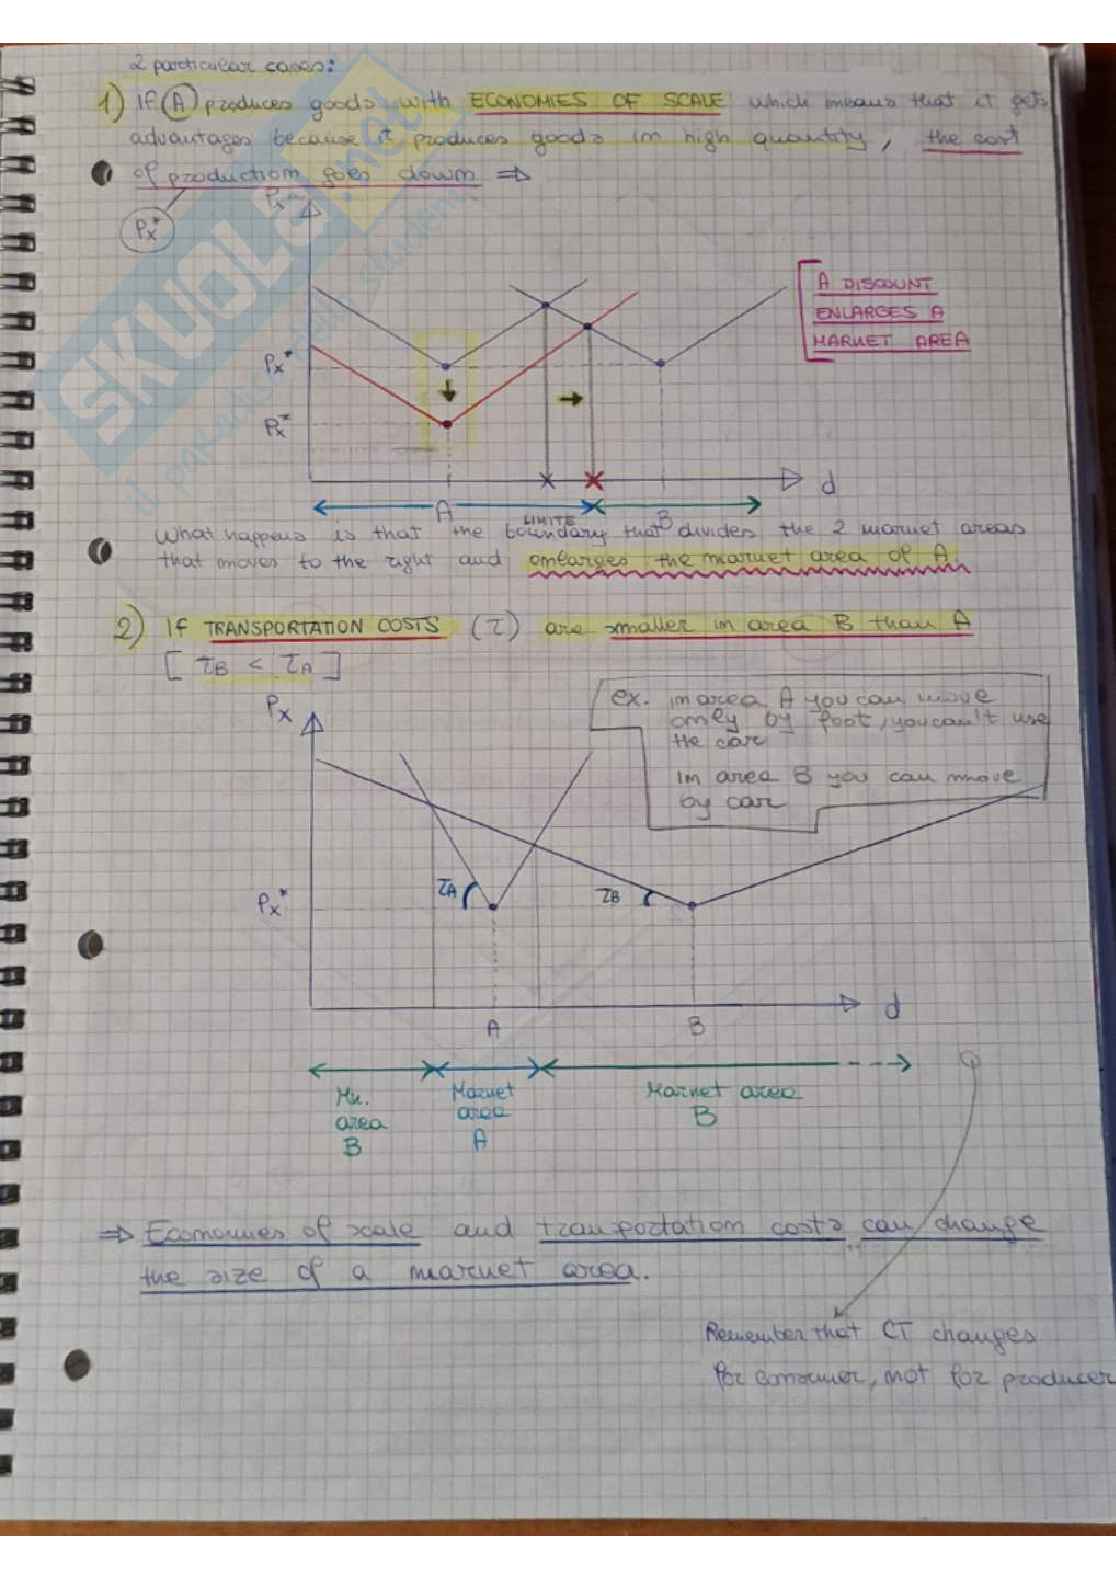 2 particular cases:
1) If (A) produces goods with ECONOMIES OF SCALE which means that it gets
advantages because it produces goods in high quantity, the cost
of production goes down ⇒
Px*
Px
A DISCOUNT
ENLARGES A
MARKET AREA
Px*
Px*
d
A
LIMITE
B
What happens is that the boundary that divides the 2 market areas
that moves to the right and enlarges the market area of A.
2) If TRANSPORTATION COSTS (τ) are smaller in area B than A
[ τB < τA ]
Px
ex. in area A you can move
only by foot, you can't use
the car
in area B you can move
by car
τA
τB
Px*
d
A
B
Mk.
area
B
Market
area
A
Market area
B
⇒ Economies of scale and transportation costs can change
the size of a market area.
Remember that CT changes
for consumer, not for producer
SKUOLA
.net